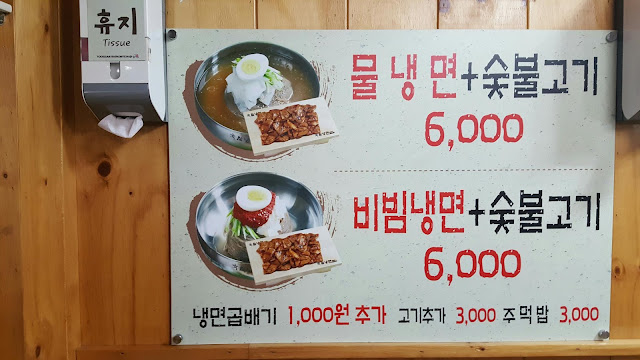 휴지
Tissue
물냉면+숯불고기
6,000
비빔냉면+숯불고기
6,000
냉면곱배기 1,000원 추가 고기추가 3,000 주먹밥 3,000